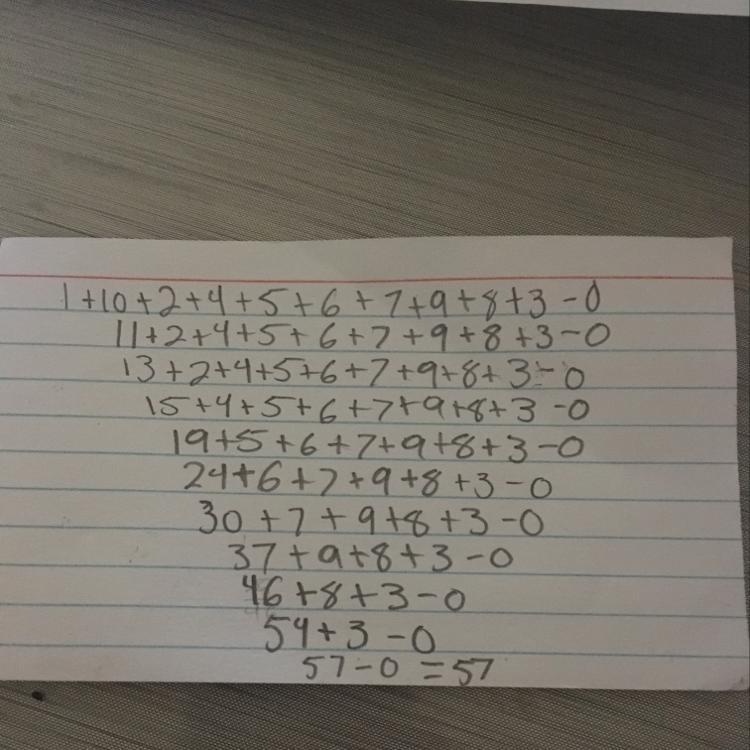 1+10+2+4+5+6+7+9+8+3-0
11+2+4+5+6+7+9+8+3-0
13+2+4+5+6+7+9+8+3-0
15+4+5+6+7+9+8+3-0
19+5+6+7+9+8+3-0
24+6+7+9+8+3-0
30+7+9+8+3-0
37+9+8+3-0
46+8+3-0
54+3-0
57-0=57